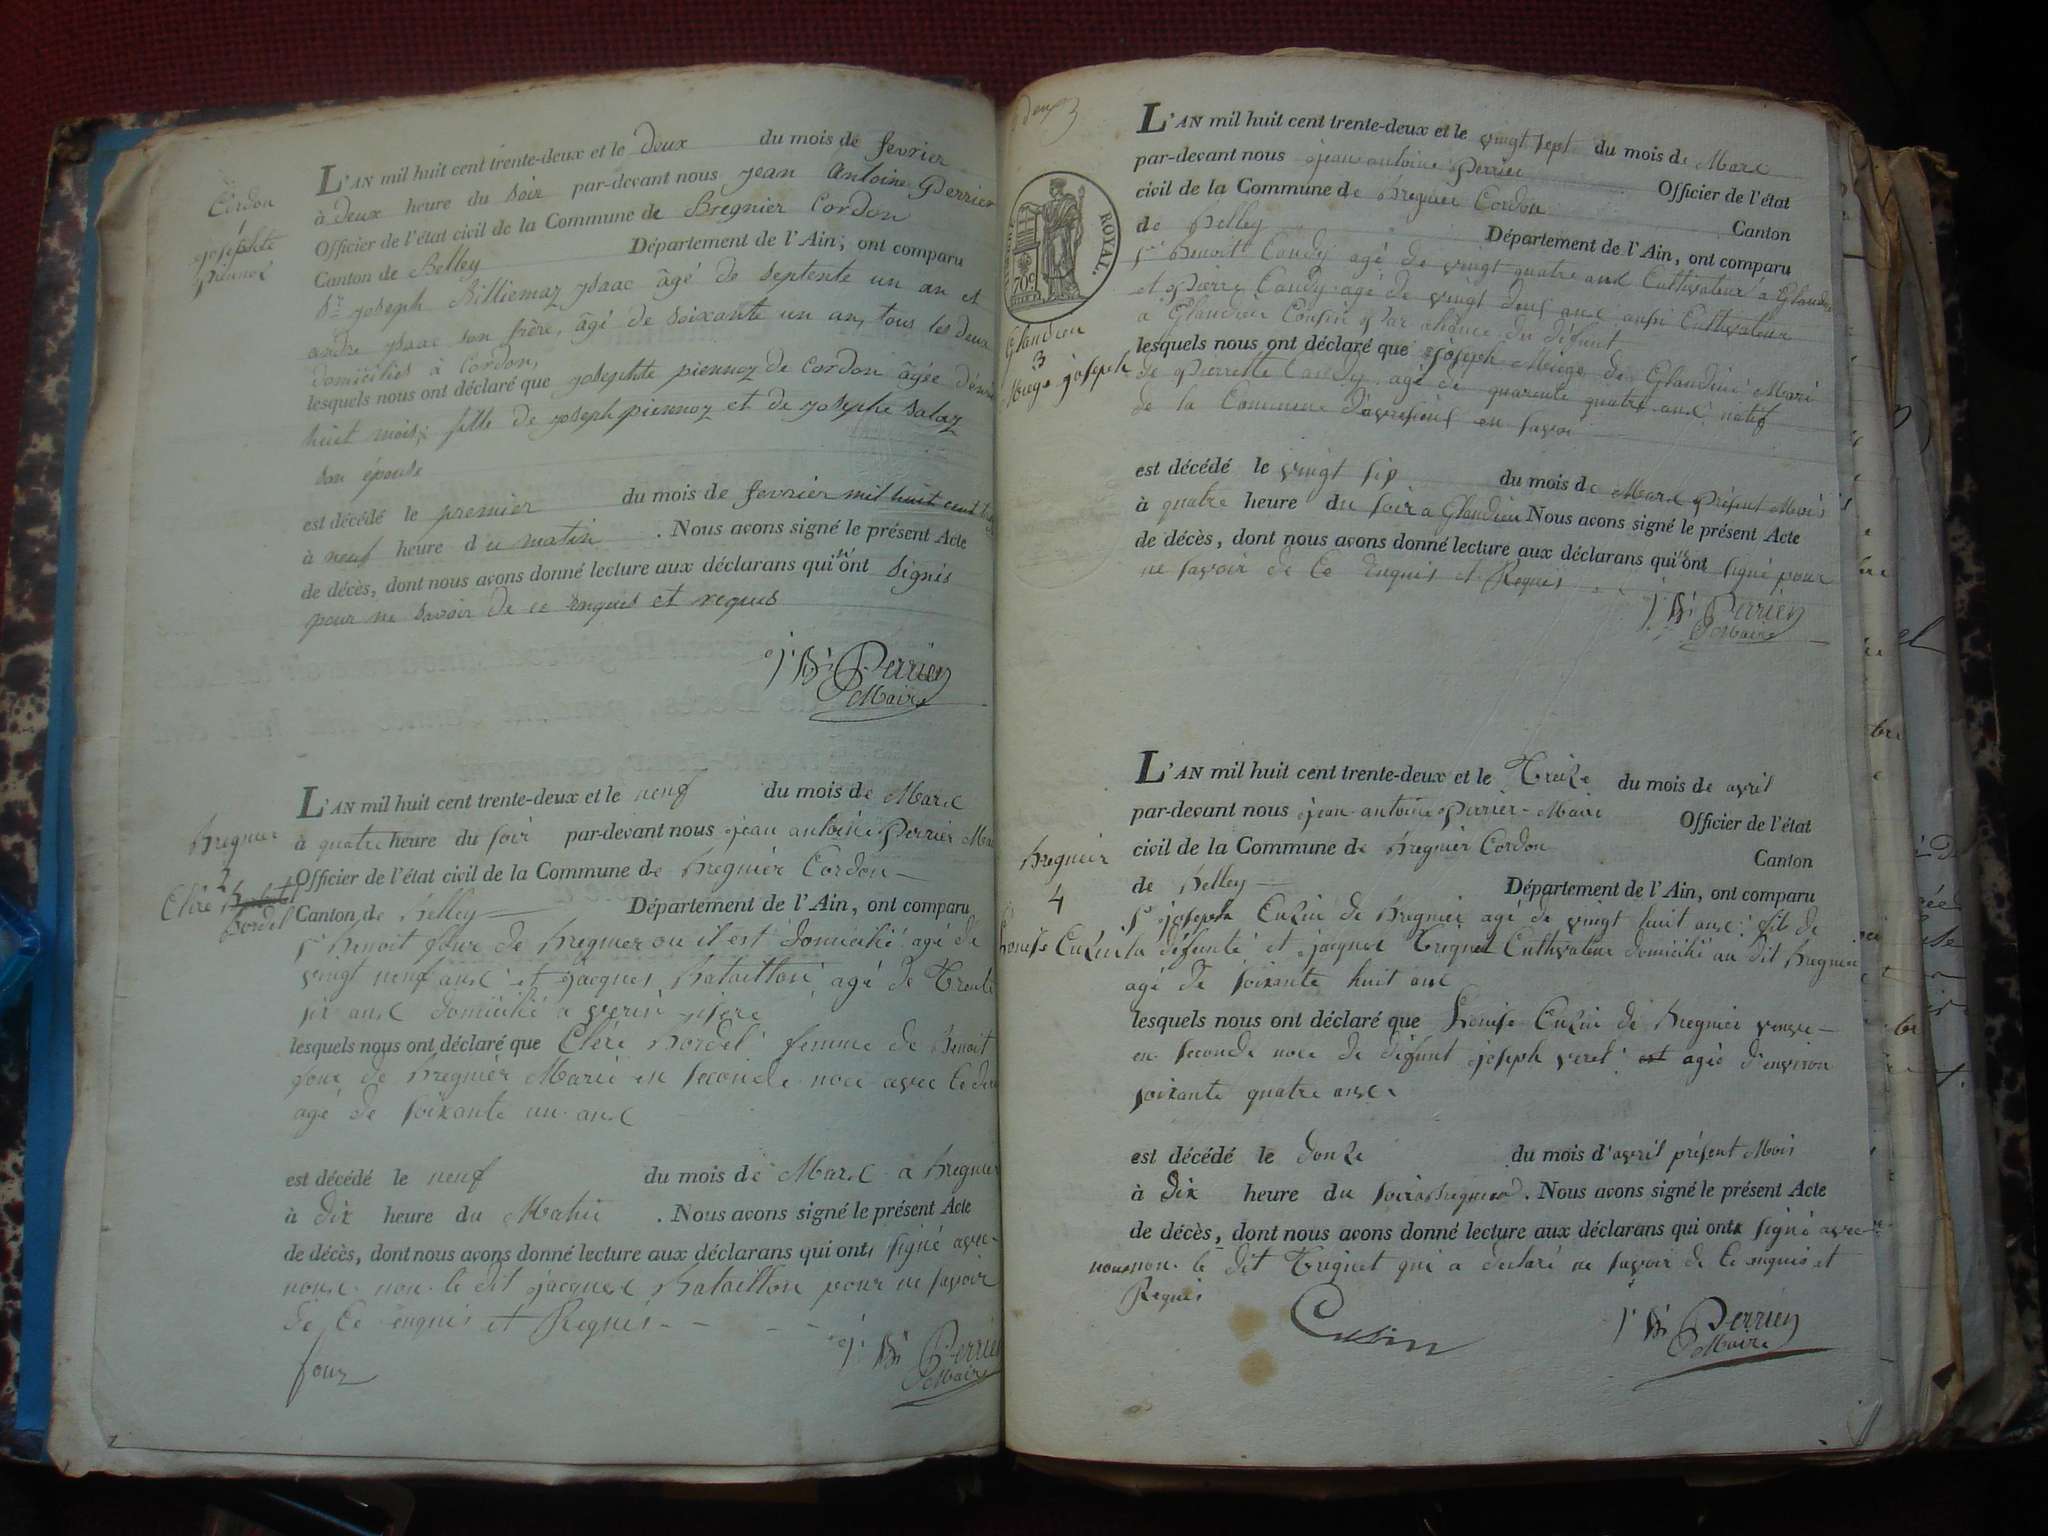 Cordon
1
josephte
piennoz
L'AN mil huit cent trente-deux et le deux du mois de fevrier
à deux heure du soir par-devant nous jean Antoine Perrier
Officier de l'état civil de la Commune de Bregnier Cordon
Canton de Belley Département de l'Ain, ont comparu
Sr joseph Billiemaz ysaac âgé de septente un an et
andré ysaac son frère, âgé de soixante un an, tous les deux
domiciliés à Cordon,
lesquels nous ont déclaré que josephte piennoz de Cordon âgée d'environ
huit mois, fille de joseph piennoz et de josephe Salaz
son épouse
est décédé le premier du mois de fevrier mil huit cent
à neuf heure du matin . Nous avons signé le présent Acte
de décès, dont nous avons donné lecture aux déclarans qui n'ont signés
pour ne savoir de ce enquis et requis
j. A. Perrier
Maire
Bregnier
2
Clère
Bordel
L'AN mil huit cent trente-deux et le neuf du mois de Mars
à quatre heure du soir par-devant nous jean antoine Perrier
Officier de l'état civil de la Commune de Bregnier Cordon
Canton de Belley Département de l'Ain, ont comparu
Sr Benoit four de Bregnier ou il est domicilié agé de
vingt neuf ans et jacques Bataillon agé de Trente
six ans domicilié a isère
lesquels nous ont déclaré que Clère Bordel femme de Benoit
four de Bregnier Marié en seconde noce avec le dit
agé de soixante un ans
est décédé le neuf du mois de Mars a Bregnier
à dix heure du Matin . Nous avons signé le présent Acte
de décès, dont nous avons donné lecture aux déclarans qui ont signé avec
nous non le dit jacques Bataillon pour ne savoir
de Ce enquis et Requis
four
j. A. Perrier
Maire
ROYAL.
Glandieu
3
Miege joseph
L'AN mil huit cent trente-deux et le vingt sept du mois de Mars
par-devant nous jean antoine Perrier Officier de l'état
civil de la Commune de Bregnier Cordon Canton
de Belley Département de l'Ain, ont comparu
Sr Benoit Candy agé de vingt quatre ans Cultivateur a Glandieu
et Pierre Candy agé de vingt deux ans aussi Cultivateur
a Glandieu Cousin par aliance du défunt
lesquels nous ont déclaré que joseph Miège de Glandieu Mari
de Pierrette Candy agé de quarante quatre ans natif
de la Commune en savoi
est décédé le vingt six du mois de Mars présent Mois
à quatre heure du soir a Glandieu Nous avons signé le présent Acte
de décès, dont nous avons donné lecture aux déclarans qui n'ont signé pour
ne savoir de Ce enquis et Requis
j. A. Perrier
Maire
Bregnier
4
Louise Cuzin
L'AN mil huit cent trente-deux et le Treize du mois de avril
par-devant nous jean antoine Perrier Maire Officier de l'état
civil de la Commune de Bregnier Cordon Canton
de Belley Département de l'Ain, ont comparu
Sr joseph Cuzin de Bregnier agé de vingt huit ans fils de
la défunte et jacques Trignet Cultivateur domicilié au dit Bregnier
agé de soixante huit ans
lesquels nous ont déclaré que Louise Cuzin de Bregnier veuve
en seconde noce de défunt joseph veret est agée d'environ
soixante quatre ans
est décédé le douze du mois d'avril présent Mois
à dix heure du soir a Bregnier . Nous avons signé le présent Acte
de décès, dont nous avons donné lecture aux déclarans qui ont signé avec
nous non le dit Trignet qui a déclaré ne savoir de Ce enquis et
Requis
Cusin
j. A. Perrier
Maire